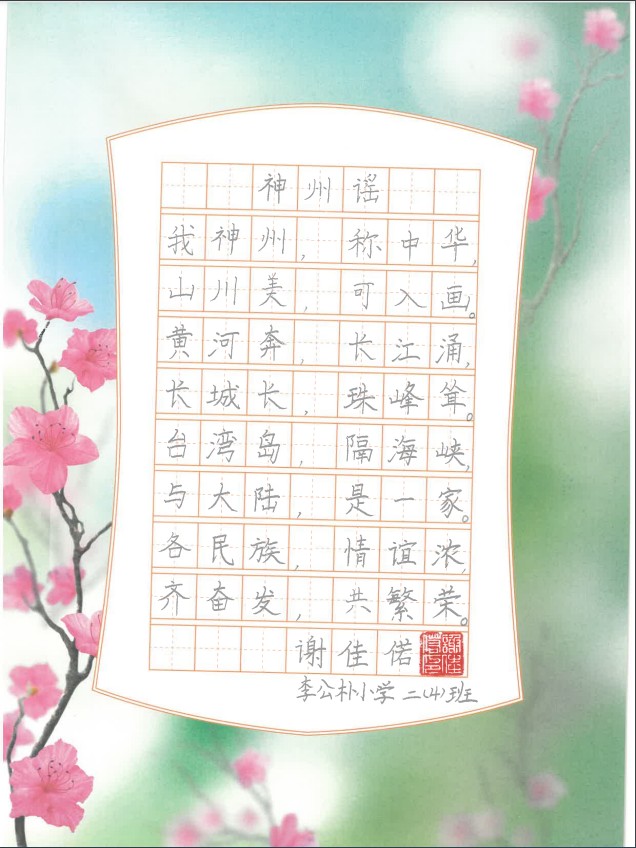 神州谣
我神州，称中华，
山川美，可入画。
黄河奔，长江涌，
长城长，珠峰耸。
台湾岛，隔海峡，
与大陆，是一家。
各民族，情谊浓，
齐奋发，共繁荣。
谢佳偌
李公朴小学 二(4)班